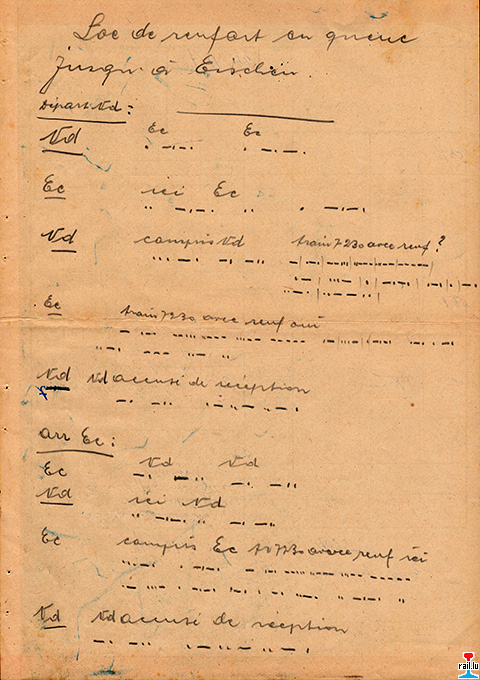 Loc de renfort en queue
jusqu'à Eischen.
Départ Nd:
Nd Ec Ec
Ec ici Ec
Nd compris Nd train 7230 avec renf?
Ec train 7230 avec renf oui
Nd Nd accusé de réception
arr Ec:
Ec Nd Nd
Nd ici Nd
Ec compris Ec tr 7230 avec renf ici
Nd Nd accusé de réception
rail.lu